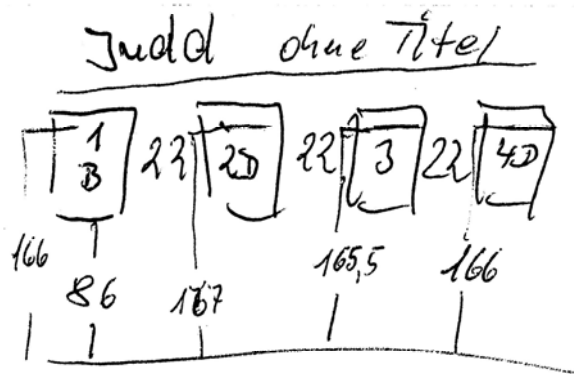 Judd ohne Titel
1 22 2D 22 3 22 4D
B
166 86 167 165,5 166